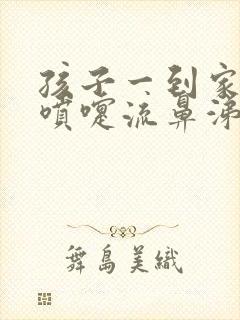 孩子一到家
喷嚏流鼻涕
舞岛美織